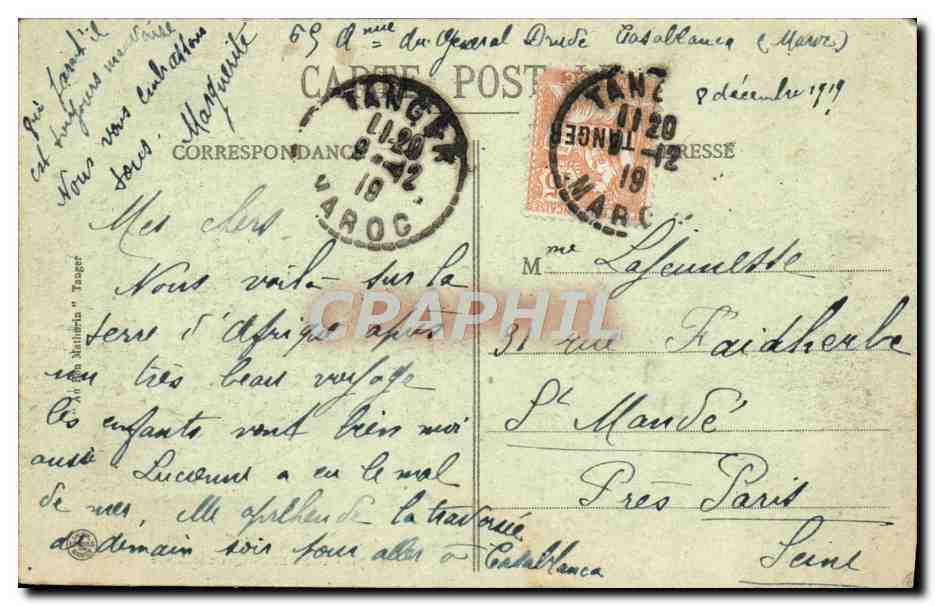 65 Anue du Général Drude Casablanca (Maroc)
8 décembre 1919
CARTE POST
CORRESPONDANCE
RESSE
TANGER
11-20
9-12
19
MAROC
TANGER
TANGER
11-20
-12
19
MAROC
Mes chers
Nous voilà sur la
terre d'Afrique après
un très beau voyage
les enfants vont bien moi
aussi Lucienne a eu le mal
de mer, elle apréhende la traversée
de demain soir pour aller à Casablanca
Qui serait-il
est toujours
Nous vous embrassons
tous. Marguerite
Mme Lajeunesse
31 rue Faidherbe
St Mandé
Près Paris
Seine
"Au Bon Mathurin" Tanger
CRAPHIL